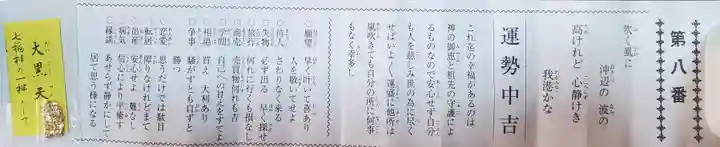 第八番
吹く風に
沖辺の 波の
高けれど 心静けき
我港かな
運勢中吉
これ迄の幸福があるのは
神の御恵と祖先の守護によ
るものなので安心せず自分
も人を慈しみ世の為に尽く
せばいよいよ運盛に他所は
風吹きても自分の所に何事
もなく幸多し
○願望 早く叶い二喜あり
人を敬いてせよ
○待人 さわりなく来る
○失物 必ず出る 早く探せ
○旅行 何れに行くも損なし
○商売 売買物何れも吉
○学問 自己への甘えをすてよ
○相場 買え 大利あり
○争事 騒がずとも自ずと
勝つ
○恋愛 思うだけでは駄目
○転居 障りなけれどまて
○出産 安心せよ 難なし
○病気 信心により平癒す
○縁談 あせらず静かにして
居て思う様になる
大黒天
七福神の一神として